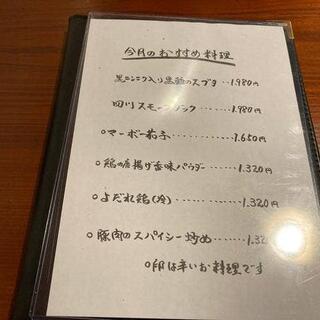 今月のおすすめ料理
黒ニンニク入り黒酢のスブタ・・1.980円
四川スモークダック・・・・・1.980円
○マーボー茄子・・・・・・・・1.650円
○鶏の唐揚げ香味パウダー・・・1.320円
○よだれ鶏(冷)・・・・・・・1.320円
○豚肉のスパイシー炒め・・・・・・1.32
○印は辛いお料理です